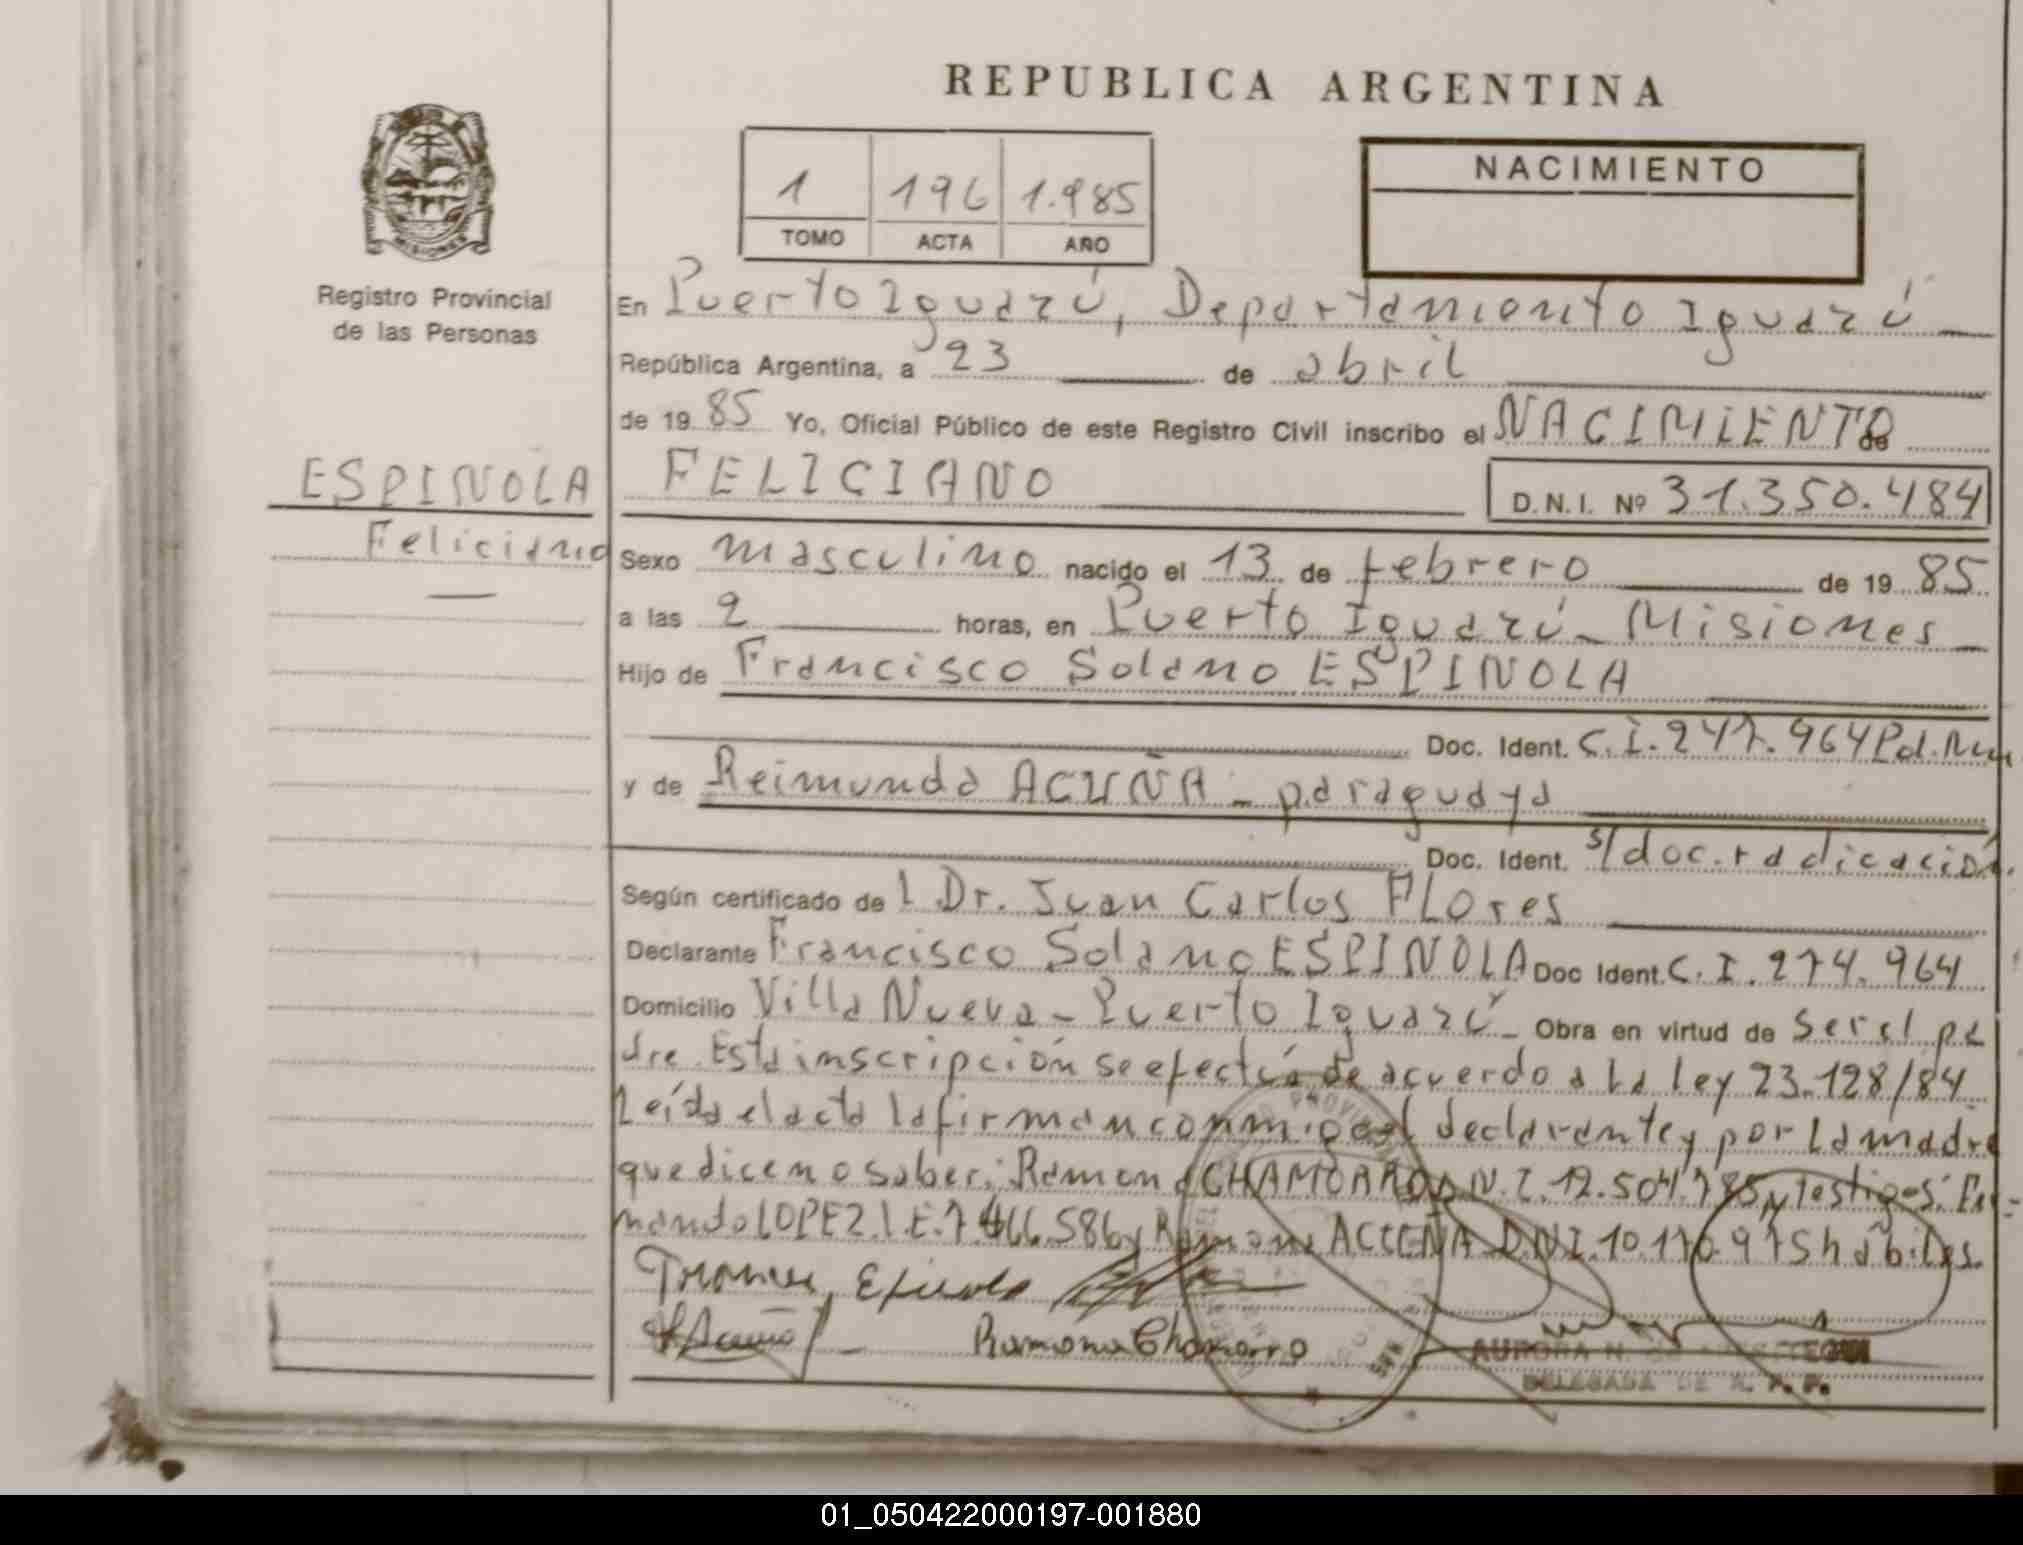 REPUBLICA ARGENTINA
1 196 1.985
TOMO ACTA AÑO
NACIMIENTO
MISIONES
Registro Provincial
de las Personas
En Puerto Iguazú, Departamento Iguazú
República Argentina, a 23 de abril
de 19 85 Yo, Oficial Público de este Registro Civil inscribo el NACIMIENTO de
ESPINOLA
Feliciano
FELICIANO D.N.I. Nº 31.350.484
Sexo masculino nacido el 13 de febrero de 19 85
a las 2 horas, en Puerto Iguazú - Misiones
Hijo de Francisco Solano ESPINOLA
Doc. Ident. C.I. 247.964 Pol.
y de Reimunda ACUÑA - paraguaya
Doc. Ident. s/doc. radicación.
Según certificado de l Dr. Juan Carlos FLores
Declarante Francisco Solano ESPINOLA Doc Ident. C.I. 274.964
Domicilio Villa Nueva - Puerto Iguazú - Obra en virtud de ser el pa
dre. Esta inscripción se efectúa de acuerdo a la ley 23.128/84
Leída el acta la firman conmigo el declarante y por la madre
que dice no saber: Ramona CHAMORRO D.N.I. 12.504.785, y testigos:
mando LOPEZ. L.E. 7.466.586 y Ramona D.N.I. 10.170.975 hábiles.
Ramona Chamorro
AURORA N.
DELEGADA DE R. P. P.
01_050422000197-001880